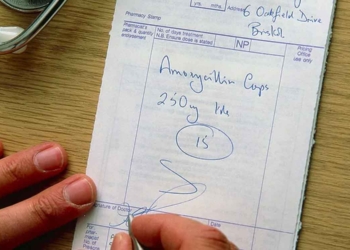 Address
6 Oakfield Drive
Bristol
Pharmacy Stamp
Pharmacist's pack & quantity endorsement
No. of days treatment
N.B. Ensure dose is stated
NP
Pricing Office use only
Amoxycillin Caps
250mg tds
15
Signature of Doctor
Date